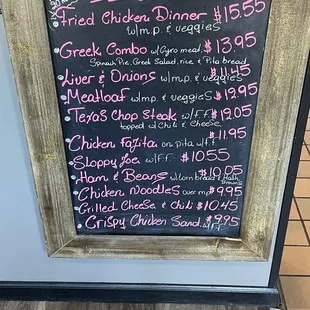 Fried Chicken Dinner $15.55
w/m.p. & veggies
Greek Combo w/Gyro meat $13.95
Spinach Pie, Greek Salad, rice & Pita bread
Liver & Onions w/mp & veggies $11.45
Meatloaf w/m.p. & veggies $12.95
Texas Chop Steak w/F.F. $12.05
topped w/Chili & Cheese
Chicken Fajita on pita w/f.f. $11.95
Sloppy Joe w/F.F. $10.55
Ham & Beans w/corn bread & $10.05
Chicken Noodles over mp $9.95
Grilled Cheese & Chili $10.45
Crispy Chicken Sand. w/F.F. $9.95